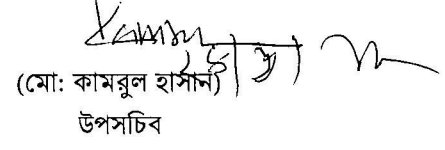 (মো: কামরুল হাসান)
উপসচিব